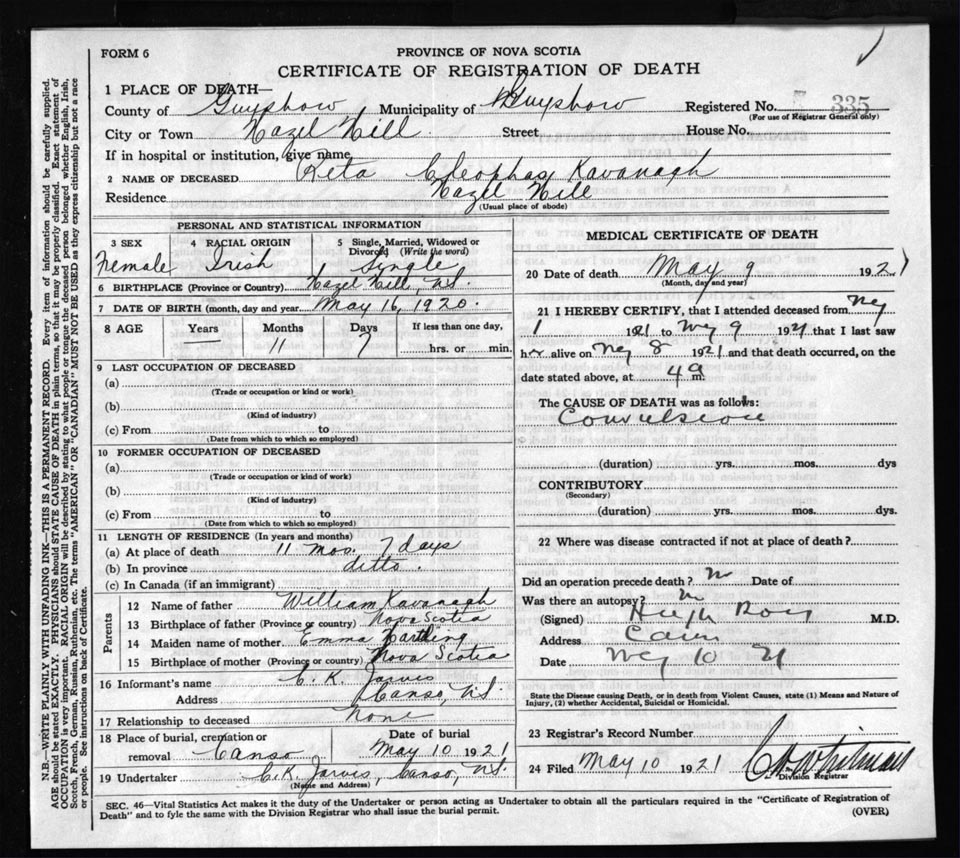 FORM 6
PROVINCE OF NOVA SCOTIA
CERTIFICATE OF REGISTRATION OF DEATH
1 PLACE OF DEATH—
County of Guysboro Municipality of Guysboro Registered No. 335
(For use of Registrar General only)
City or Town Hazel Hill Street House No.
If in hospital or institution, give name
2 NAME OF DECEASED Reta Cleophas Kavanagh
Residence Hazel Hill
(Usual place of abode)
PERSONAL AND STATISTICAL INFORMATION
3 SEX 4 RACIAL ORIGIN 5 Single, Married, Widowed or
Divorced (Write the word)
Female Irish Single
6 BIRTHPLACE (Province or Country) Hazel Hill, N.S.
7 DATE OF BIRTH (month, day and year) May 16, 1920.
8 AGE Years Months Days If less than one day,
— 11 7 hrs. or min.
9 LAST OCCUPATION OF DECEASED
(a)
(Trade or occupation or kind of work)
(b)
(Kind of industry)
(c) From to
(Date from which to which so employed)
10 FORMER OCCUPATION OF DECEASED
(a)
(Trade or occupation or kind of work)
(b)
(Kind of industry)
(c) From to
(Date from which to which so employed)
11 LENGTH OF RESIDENCE (In years and months)
(a) At place of death 11 mos. 7 days
(b) In province ditto.
(c) In Canada (if an immigrant)
Parents
12 Name of father William Kavanagh
13 Birthplace of father (Province or country) Nova Scotia
14 Maiden name of mother Emma Hartling
15 Birthplace of mother (Province or country) Nova Scotia
16 Informant's name C. K. Jarvis
Address Canso, N.S.
17 Relationship to deceased None
18 Place of burial, cremation or Date of burial
removal Canso May 10 1921
19 Undertaker C.K. Jarvis, Canso, N.S.
(Name and Address)
MEDICAL CERTIFICATE OF DEATH
20 Date of death May 9 1921
(Month, day and year)
21 I HEREBY CERTIFY, that I attended deceased from May
1 1921 to May 9 1921 that I last saw
her alive on May 8 1921 and that death occurred, on the
date stated above, at 4 a m.
The CAUSE OF DEATH was as follows:
Convulsion
(duration) yrs. mos. dys
CONTRIBUTORY
(Secondary)
(duration) yrs. mos. dys.
22 Where was disease contracted if not at place of death?
Did an operation precede death? No Date of
Was there an autopsy? No
(Signed) Hugh M.D.
Address
Date May 10 21
State the Disease causing Death, or in death from Violent Causes, state (1) Means and Nature of
Injury, (2) whether Accidental, Suicidal or Homicidal.
23 Registrar's Record Number
24 Filed May 10 1921
Division Registrar
SEC. 46—Vital Statistics Act makes it the duty of the Undertaker or person acting as Undertaker to obtain all the particulars required in the "Certificate of Registration of
Death" and to fyle the same with the Division Registrar who shall issue the burial permit.
(OVER)
N.B.—WRITE PLAINLY WITH UNFADING INK—THIS IS A PERMANENT RECORD. Every item of information should be carefully supplied.
AGE should be stated EXACTLY. PHYSICIANS should STATE CAUSE OF DEATH in plain terms, so that it may be properly classified. Exact statement of
OCCUPATION is very important. RACIAL ORIGIN will be described by stating to what people or tongue the deceased person belonged whether English, Irish,
Scotch, French, German, Russian, Ruthenian, etc. The terms "AMERICAN" OR "CANADIAN" MUST NOT BE USED as they express citizenship but not a race
or people. See instructions on back of Certificate.